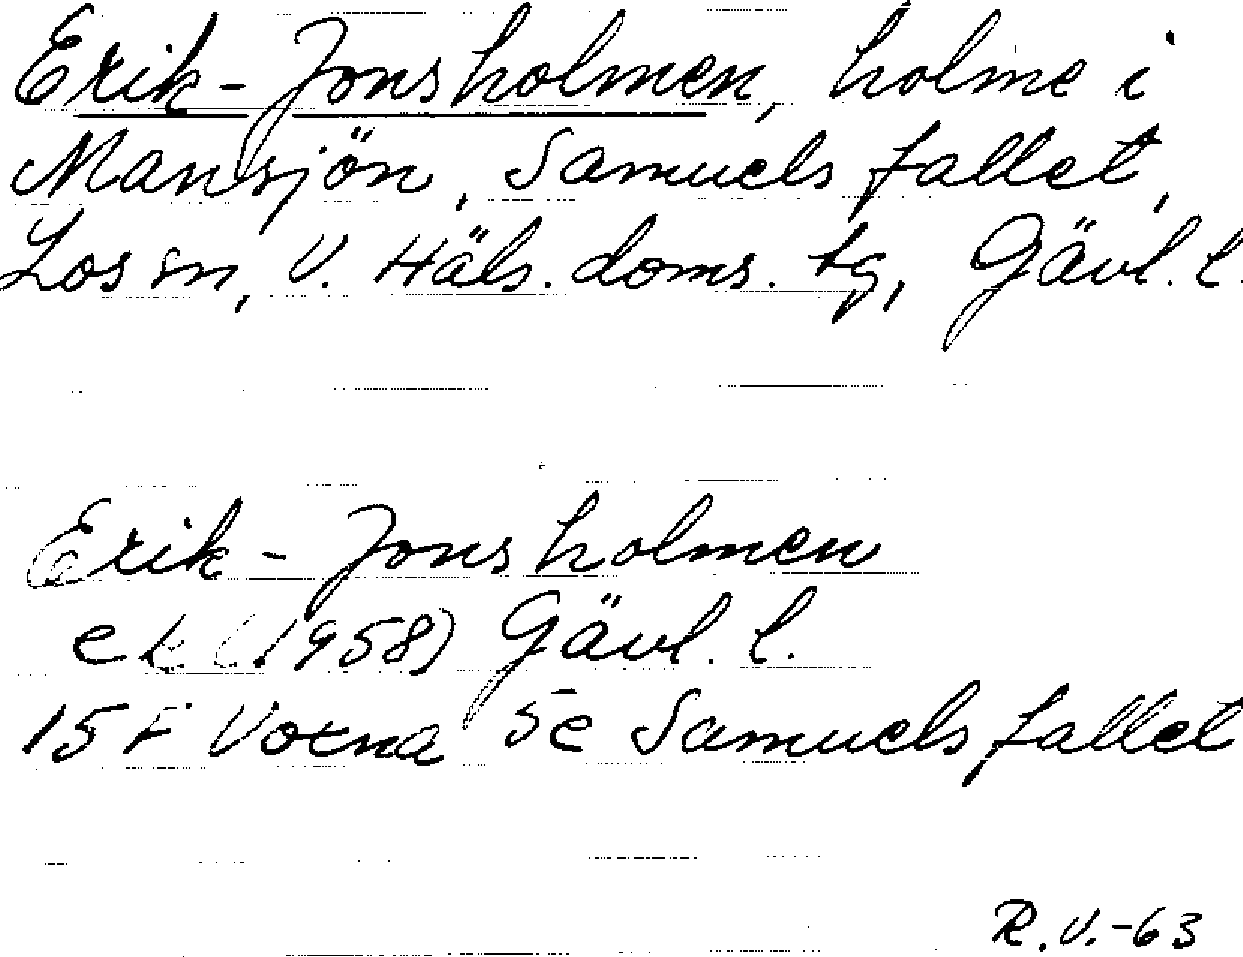 Erik-Jonsholmen, holme i
Mansjön, Samuelsfallet,
Los sn, V. Häls. doms. tg, Gävl. l.
Erik-Jonsholmen
ek (1958) Gävl. l.
15F Voxna 5e Samuelsfallet
R.V.-63